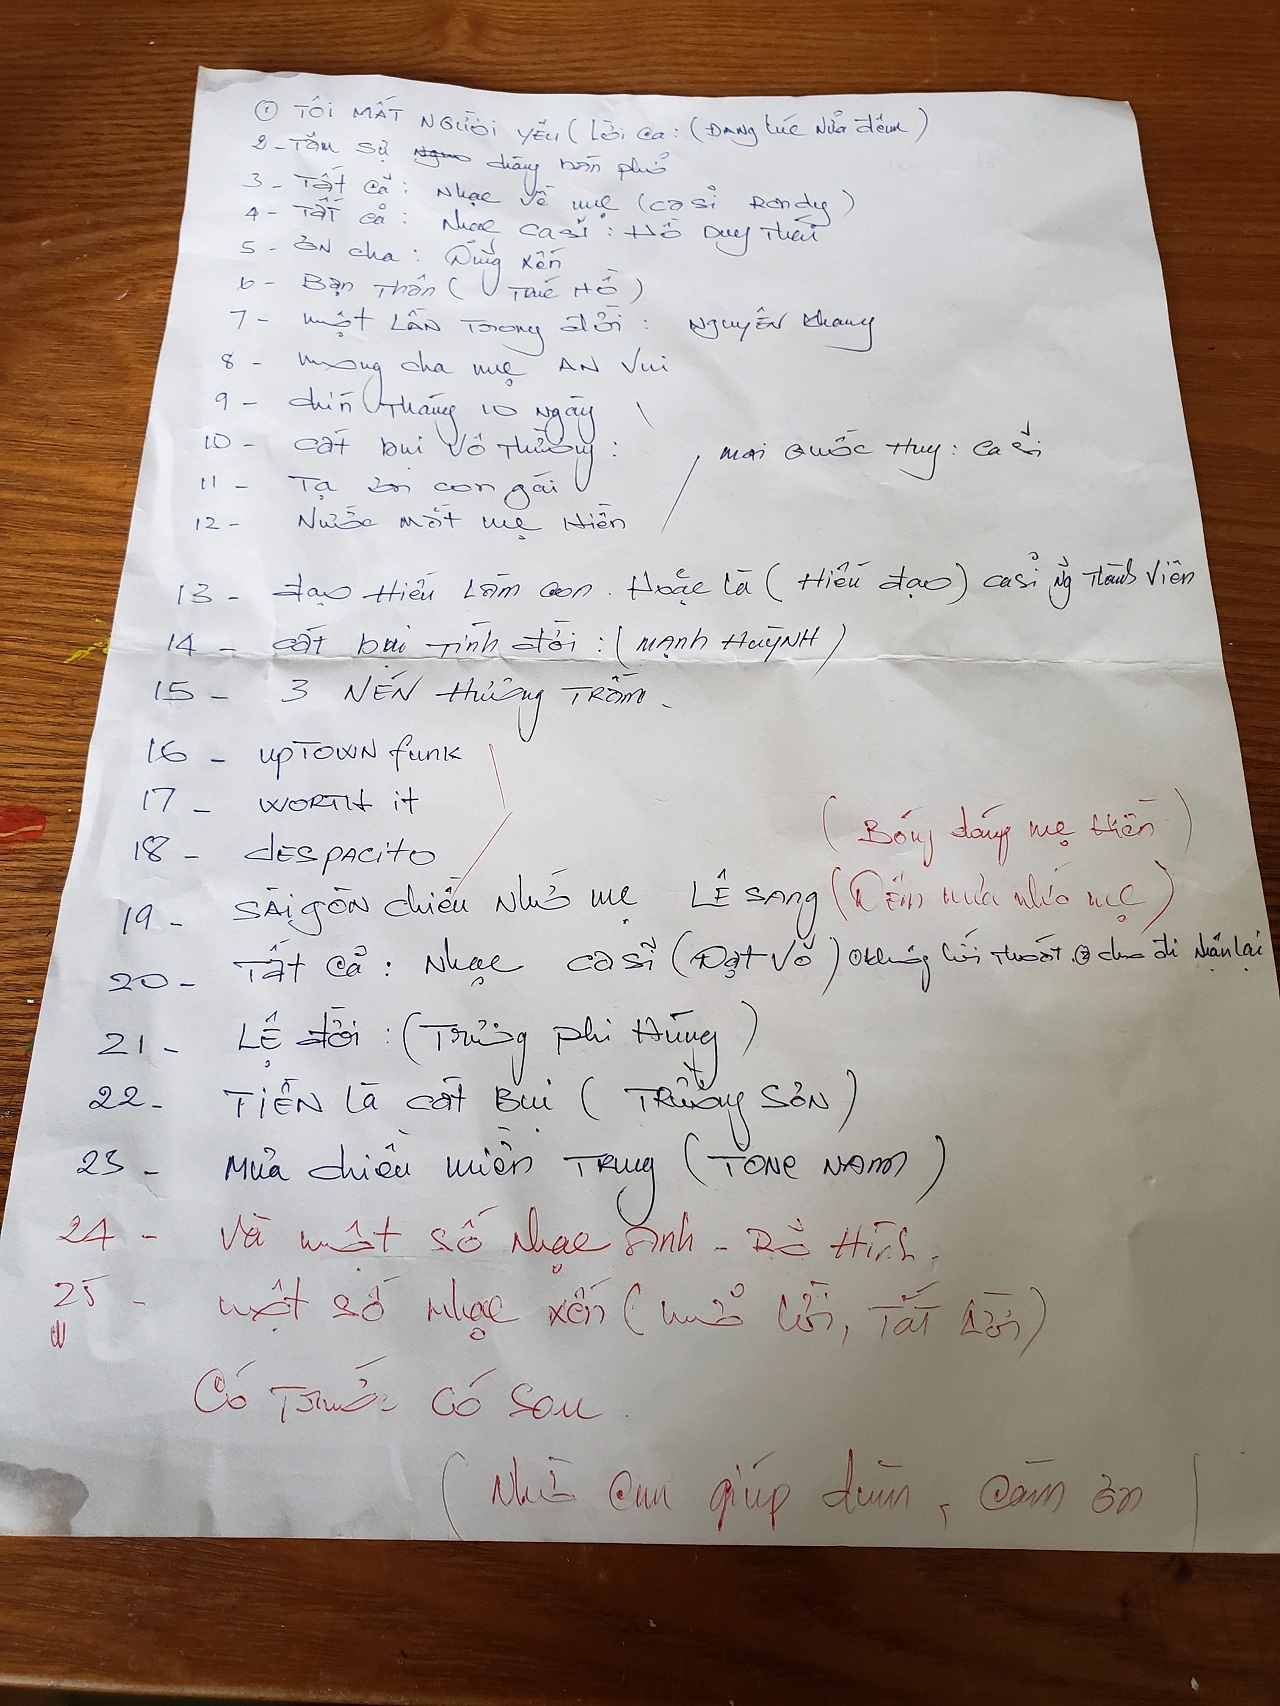 ① TÔI MẤT NGƯỜI YÊU (Lời ca: (ĐANG lúc Nửa đêm)
2 - Tâm sự chàng bán phở
3 - Tất cả: Nhạc về mẹ (casĩ Randy)
4 - TẤT cả: Nhạc casĩ: Hồ Duy Thái
5 - ƠN cha: xến
6 - Bạn Thân ( Thế Hồ )
7 - một LẦN Trong đời: Nguyên Khang
8 - mong cha mẹ AN Vui
9 - chín Tháng 10 Ngày
10 - cát bụi Vô Thường: mai Quốc Huy: Ca sĩ
11 - Tạ ơn con gái
12 - Nước mắt mẹ Hiền
13 - đạo Hiếu Làm con. Hoặc là ( Hiếu đạo ) casĩ ng Thành Viên
14 - cát bụi Tình đời: (MẠNH HUỲNH)
15 - 3 NÉN Hương TRẦM.
16 - upTOWN funk
17 - WORTH it
18 - dESPACITO
( Bóng dáng mẹ Hiền )
19 - SÀi gòN chiều Nhớ mẹ LÊ SANg (Đêm mưa nhớ mẹ)
20 - TẤT Cả: Nhạc casĩ (ĐạT Võ) ①không lối Thoát. ② cho đi Nhận lại
21 - LỆ đời: (Trương phi Hùng)
22 - TiỀN là cát Bụi ( TRƯỜng SƠN )
23 - Mưa chiều miền TRung (TONe NAm)
24 - Và một số Nhạc ảnh - Rõ Hình.
25 - một số nhạc xến ( mở lời, TắT Lời )
Có Trước có sau.
( Nhờ em giúp dùm, cảm ơn )